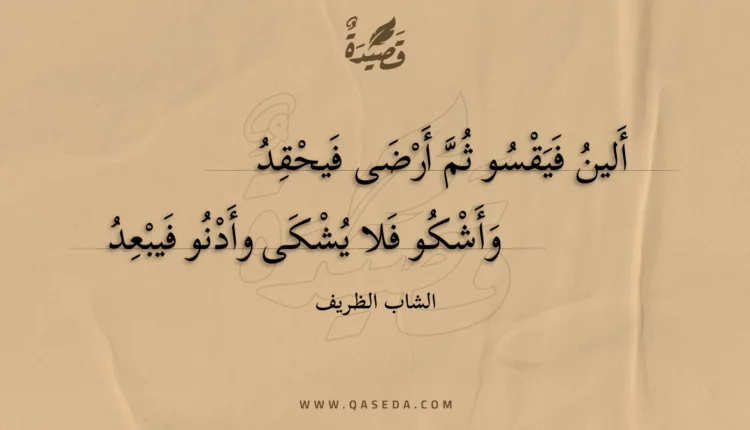 قَصِيدَةٌ
أَلينُ فَيَقْسُو ثُمَّ أَرْضَى فَيحْقِدُ
وَأَشْكُو فَلا يُشْكَى وأَدْنُو فَيبْعِدُ
الشاب الظريف
WWW.QASEDA.COM